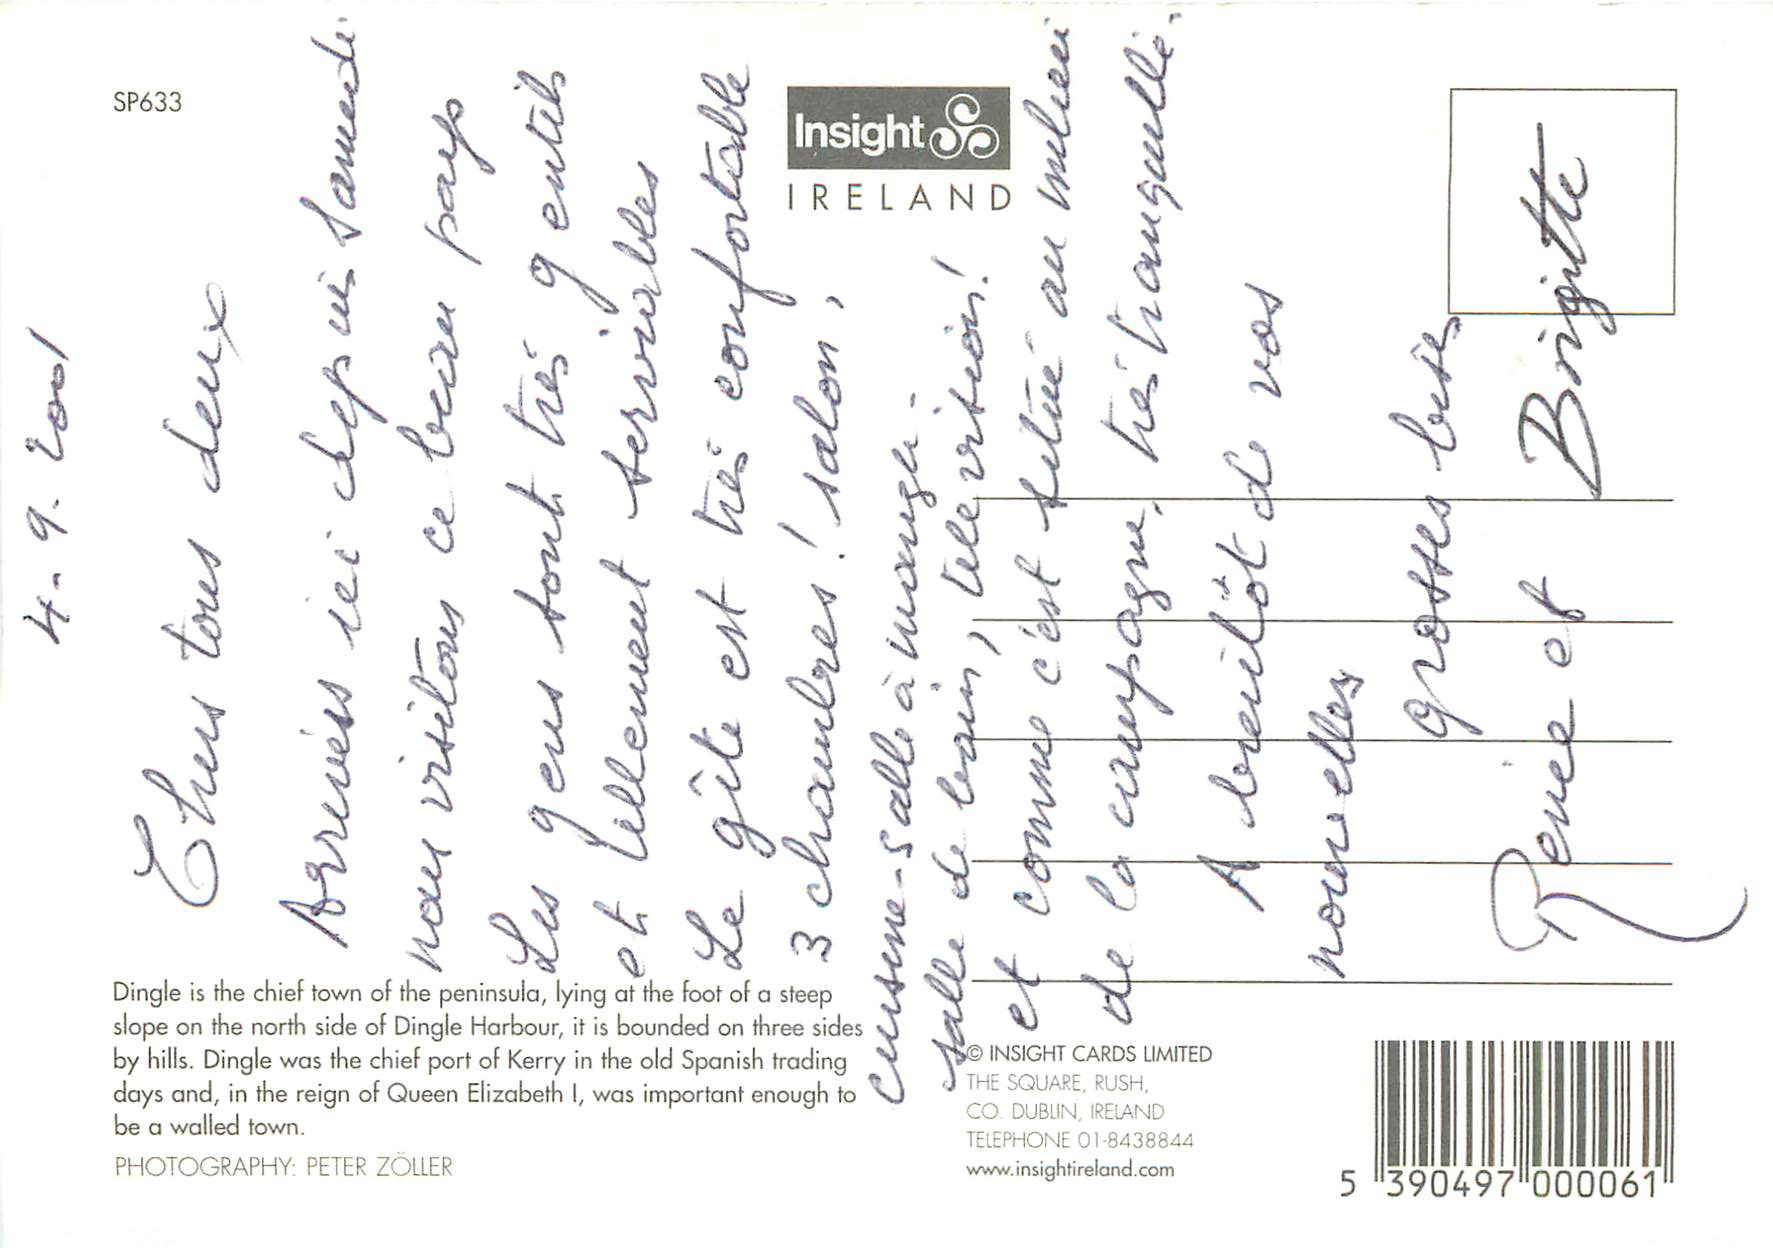 SP633
Insight
IRELAND
4-9. 2001
Chers tous deux
Arrivées ici depuis samedi.
nous visitons ce beau pays
Les gens sont très gentils
et tellement serviables
Le gîte est très confortable
3 chambres! salon,
cuisine-salle à manger-
salle de bain, télévision!
et comme c'est situé au milieu
de la campagne, très tranquille.
A bientôt de vos
nouvelles
grosses bises
Renée et Brigitte
Dingle is the chief town of the peninsula, lying at the foot of a steep
slope on the north side of Dingle Harbour, it is bounded on three sides
by hills. Dingle was the chief port of Kerry in the old Spanish trading
days and, in the reign of Queen Elizabeth I, was important enough to
be a walled town.
PHOTOGRAPHY: PETER ZÖLLER
© INSIGHT CARDS LIMITED
THE SQUARE, RUSH,
CO. DUBLIN, IRELAND
TELEPHONE 01-8438844
www.insightireland.com
5 390497 000061